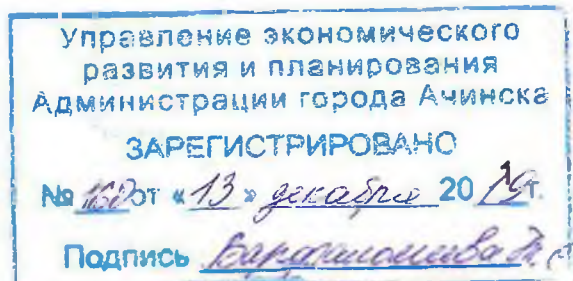 Управление экономического
развития и планирования
Администрации города Ачинска
ЗАРЕГИСТРИРОВАНО
№ от «13» декабря 2019 г.
Подпись